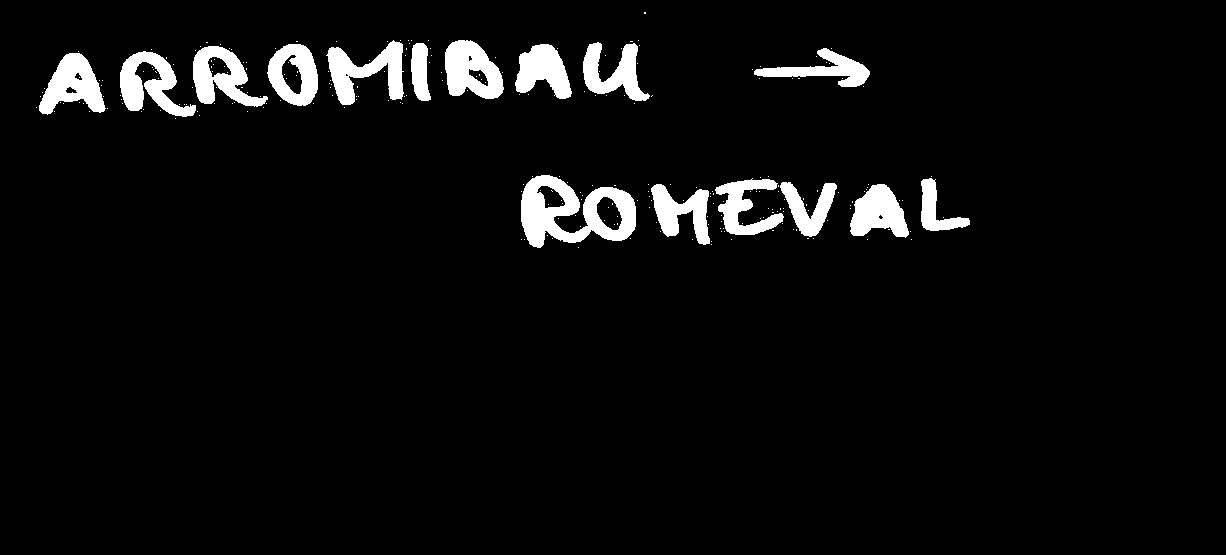 ARROMIBAU →
ROMEVAL